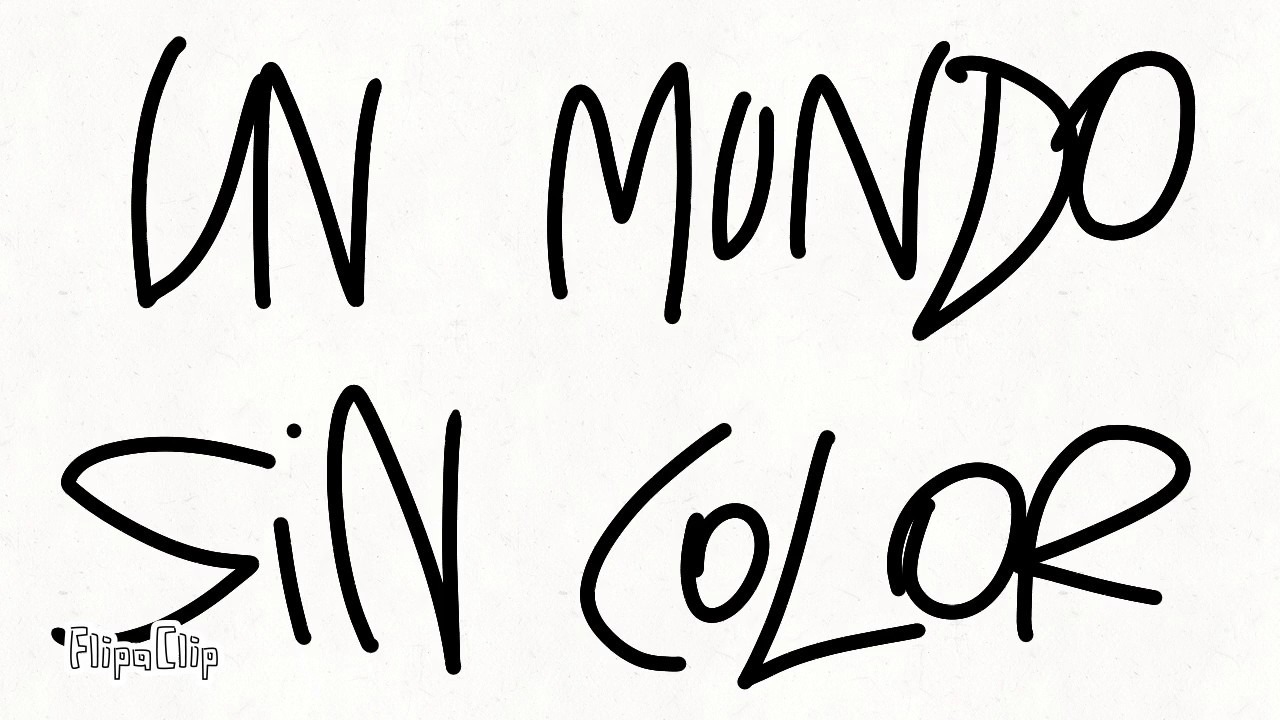 UN MUNDO
SiN COLOR
FlipaClip